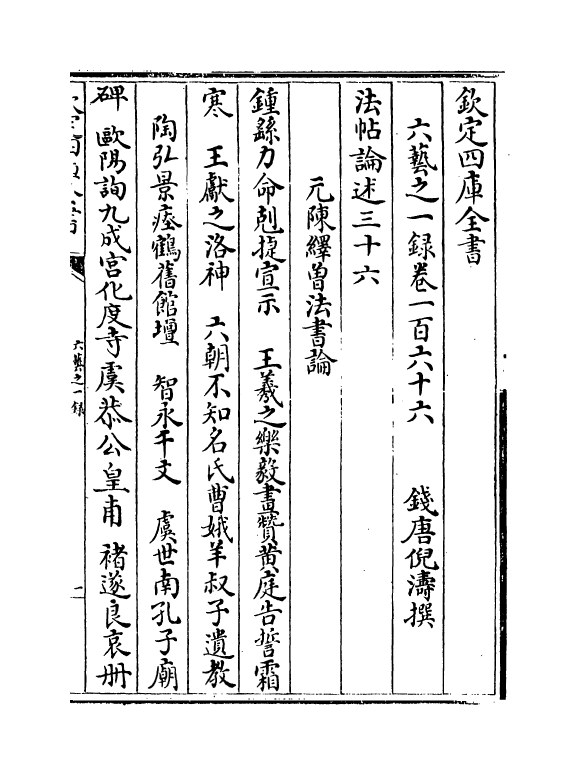 欽定四庫全書
六藝之一録卷一百六十六　錢唐倪濤撰
法帖論述三十六
元陳繹曾法書論
鍾繇力命剋捷宣示　王羲之樂毅畫贊黄庭告誓霜
寒　王獻之洛神　六朝不知名氏曹娥羊叔子遺教
陶弘景瘞鶴舊館壇　智永千文　虞世南孔子廟
碑　歐陽詢九成宫化度寺虞恭公皇甫　褚遂良哀册
六藝之一録
一